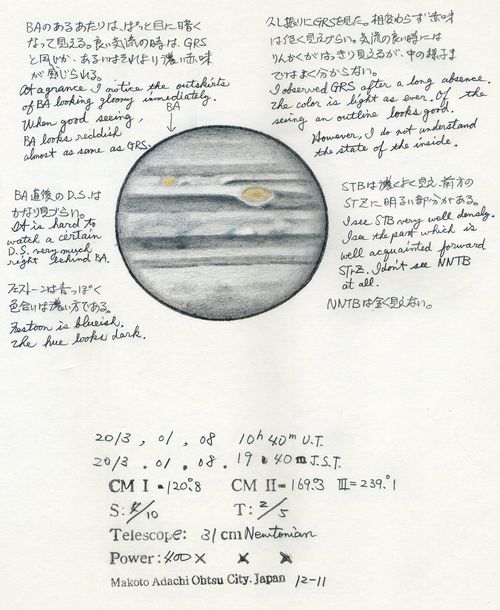 BAのあるあたりは、ぱっと目に暗く
なって見える。良い気流の時は、GRS
と同じか、あるいはそれより濃い赤味
が感じられる。
At agrance I notice the outskirts
of BA looking gloomy immediately.
When good seeing,
BA looks reddish
almost as same as GRS.
BA
久し振りにGRSを見た。相変わらず赤味
は低く見えづらい。気流の良い時には
りんかくがはっきり見えるが、中の様子ま
ではよく分からない。
I observed GRS after a long absence.
The color is light as ever. Of the
seeing an outline looks good.
However, I do not understand
the state of the inside.
BA直後のD.S.は
かなり見づらい。
It is hard to
watch a certain
D.S. very much
right behind BA.
フェストーンは青っぽく
色合いは濃い方である。
Festoon is blueish.
The hue looks dark.
STBは濃くよく見え、前方の
STZに明るい部分がある。
I see STB very well densly.
I see the part which is
well acquainted forward
STrZ. I don't see NNTB
at all.
NNTBは全く見えない。
2013 , 01 , 08 10h 40m U.T.
2013 . 01 . 08 . 19 . 40 m J.S.T.
CM I = 120.°8 CM II = 169.°3 III = 239.°1
S: 4/10 T: 2/5
Telescope: 31cm Newtonian
Power: 400 × × ×
Makoto Adachi Ohtsu City. Japan 12-11